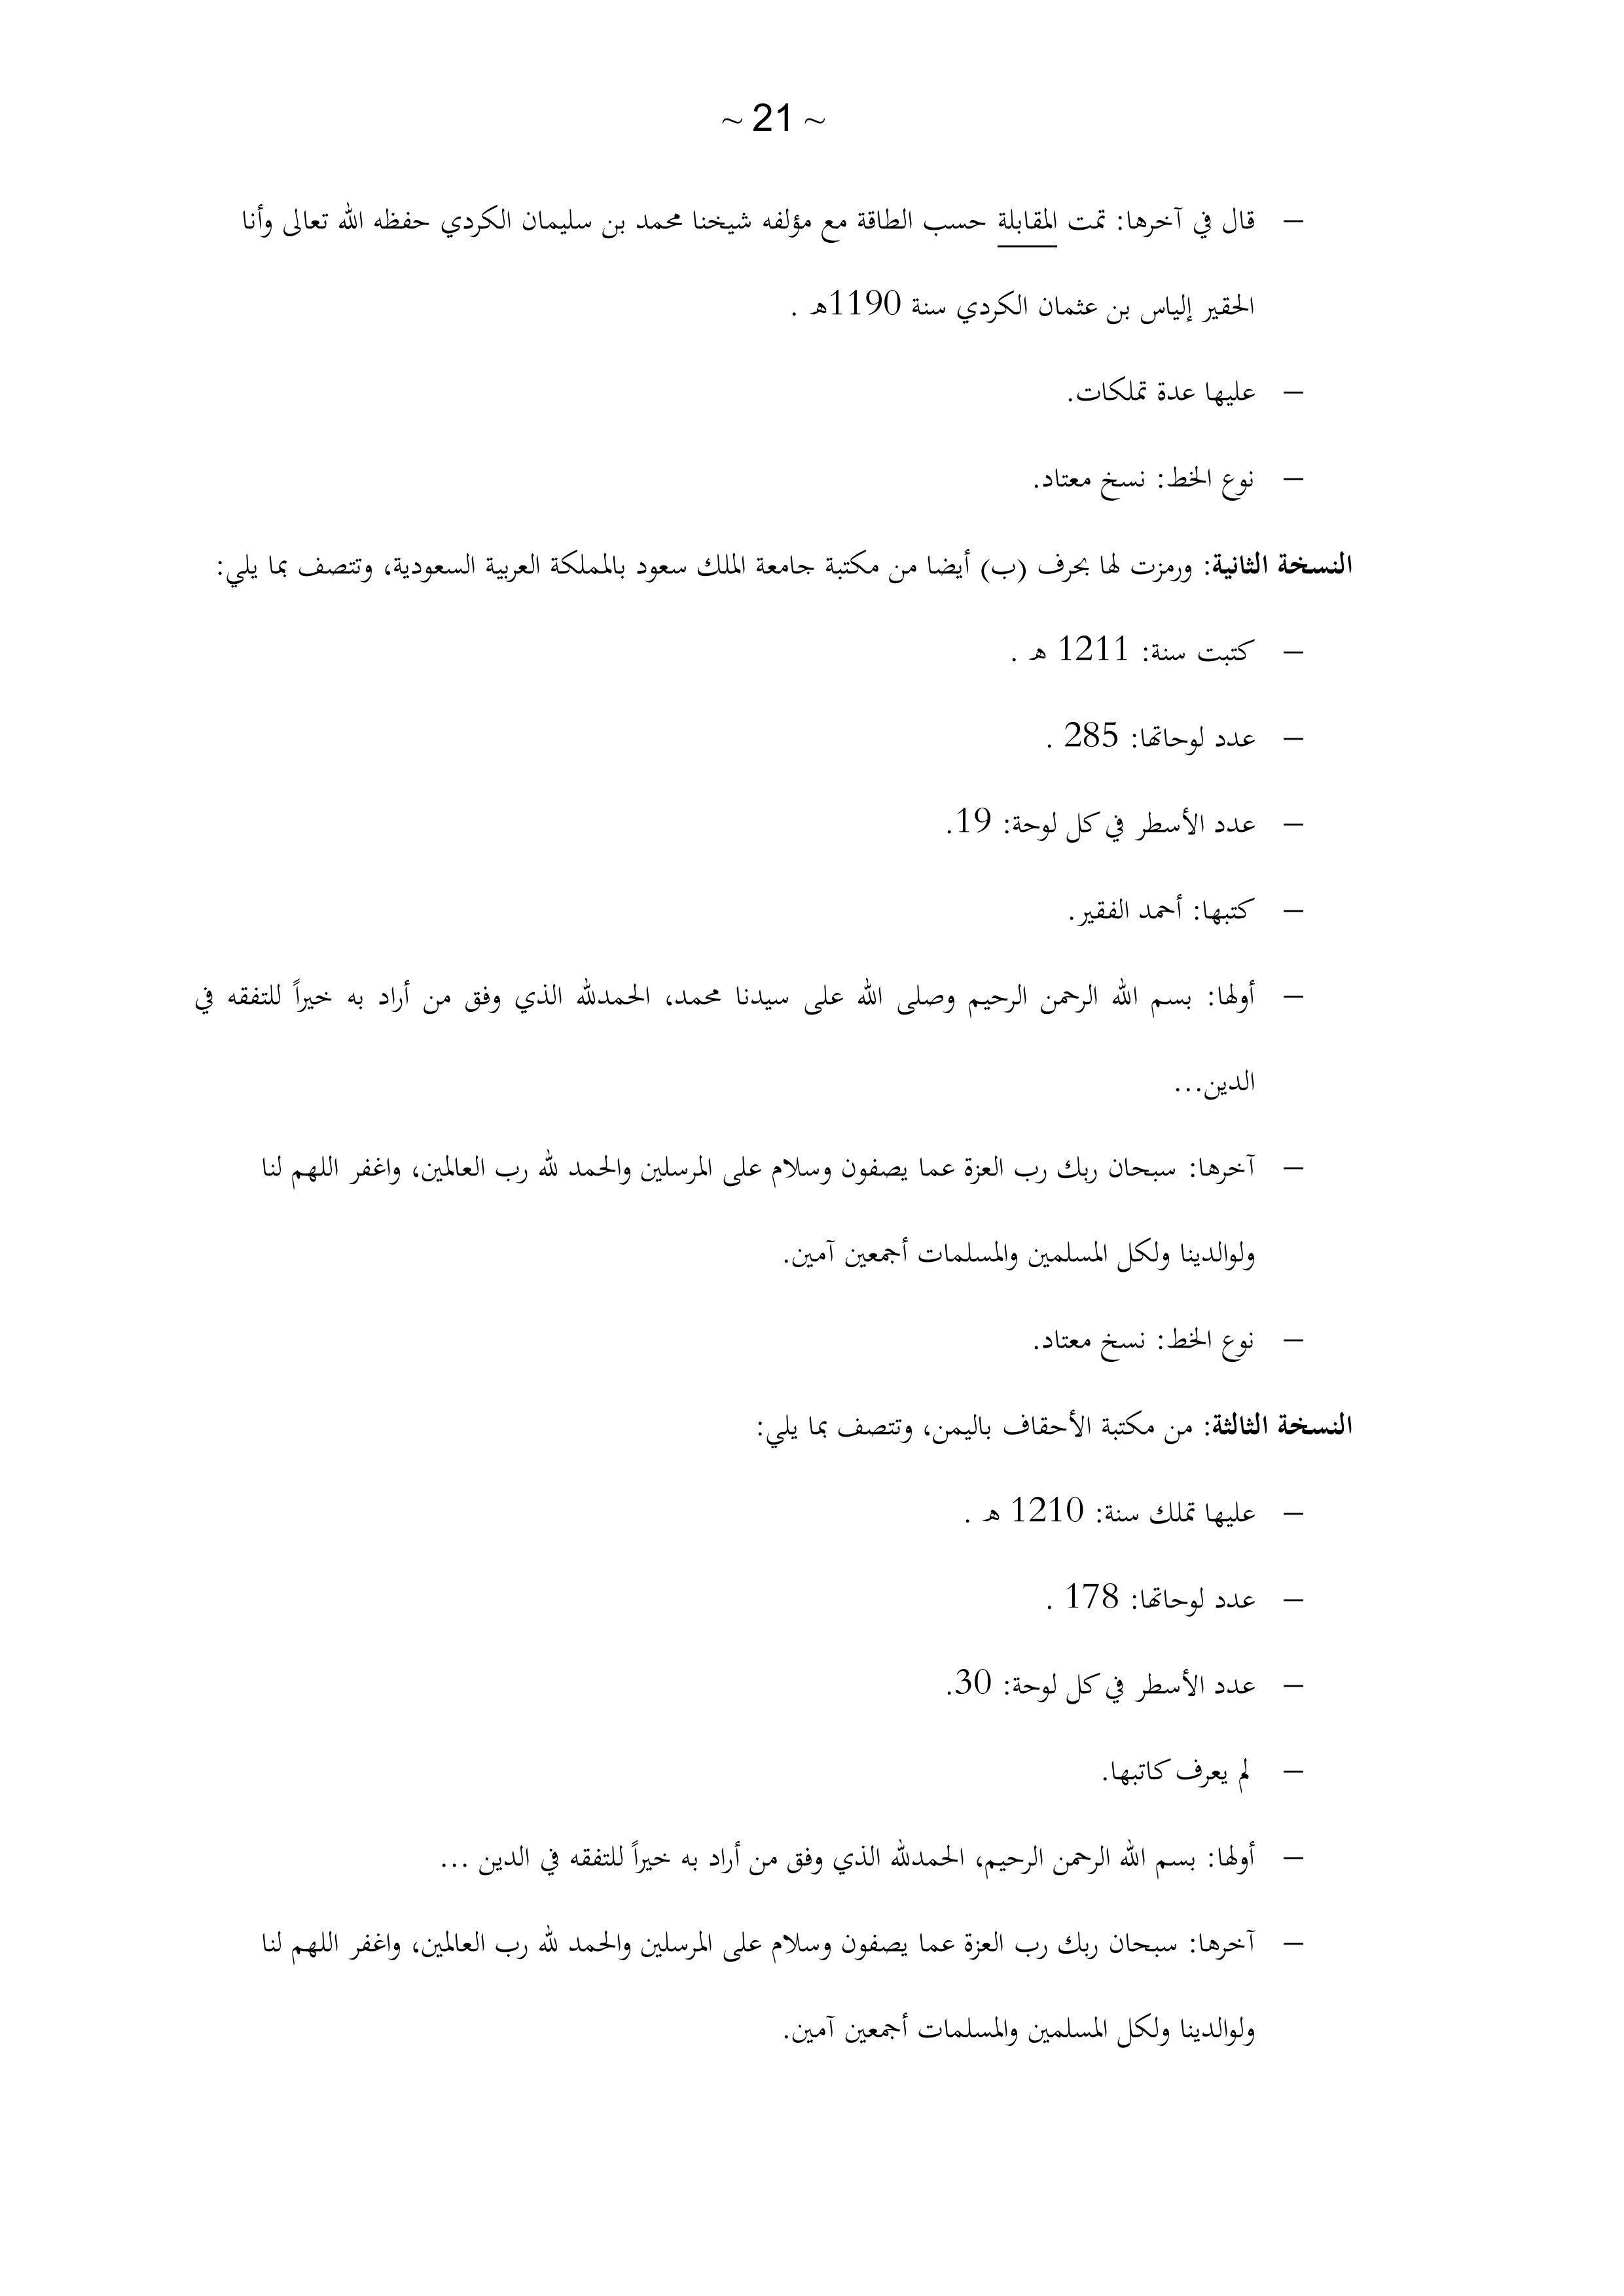 ~ 21 ~
– قال في آخرها: تمت المقابلة حسب الطاقة مع مؤلفه شيخنا محمد بن سليمان الكردي حفظه الله تعالى وأنا
الحقير إلياس بن عثمان الكردي سنة 1190هـ .
– عليها عدة تملكات.
– نوع الخط: نسخ معتاد.
النسخة الثانية: ورمزت لها بحرف (ب) أيضا من مكتبة جامعة الملك سعود بالمملكة العربية السعودية، وتتصف بما يلي:
– كتبت سنة: 1211 هـ .
– عدد لوحاتها: 285 .
– عدد الأسطر في كل لوحة: 19.
– كتبها: أحمد الفقير.
– أولها: بسم الله الرحمن الرحيم وصلى الله على سيدنا محمد، الحمدلله الذي وفق من أراد به خيراً للتفقه في
الدين...
– آخرها: سبحان ربك رب العزة عما يصفون وسلام على المرسلين والحمد لله رب العالمين، واغفر اللهم لنا
ولوالدينا ولكل المسلمين والمسلمات أجمعين آمين.
– نوع الخط: نسخ معتاد.
النسخة الثالثة: من مكتبة الأحقاف باليمن، وتتصف بما يلي:
– عليها تملك سنة: 1210 هـ .
– عدد لوحاتها: 178 .
– عدد الأسطر في كل لوحة: 30.
– لم يعرف كاتبها.
– أولها: بسم الله الرحمن الرحيم، الحمدلله الذي وفق من أراد به خيراً للتفقه في الدين ...
– آخرها: سبحان ربك رب العزة عما يصفون وسلام على المرسلين والحمد لله رب العالمين، واغفر اللهم لنا
ولوالدينا ولكل المسلمين والمسلمات أجمعين آمين.